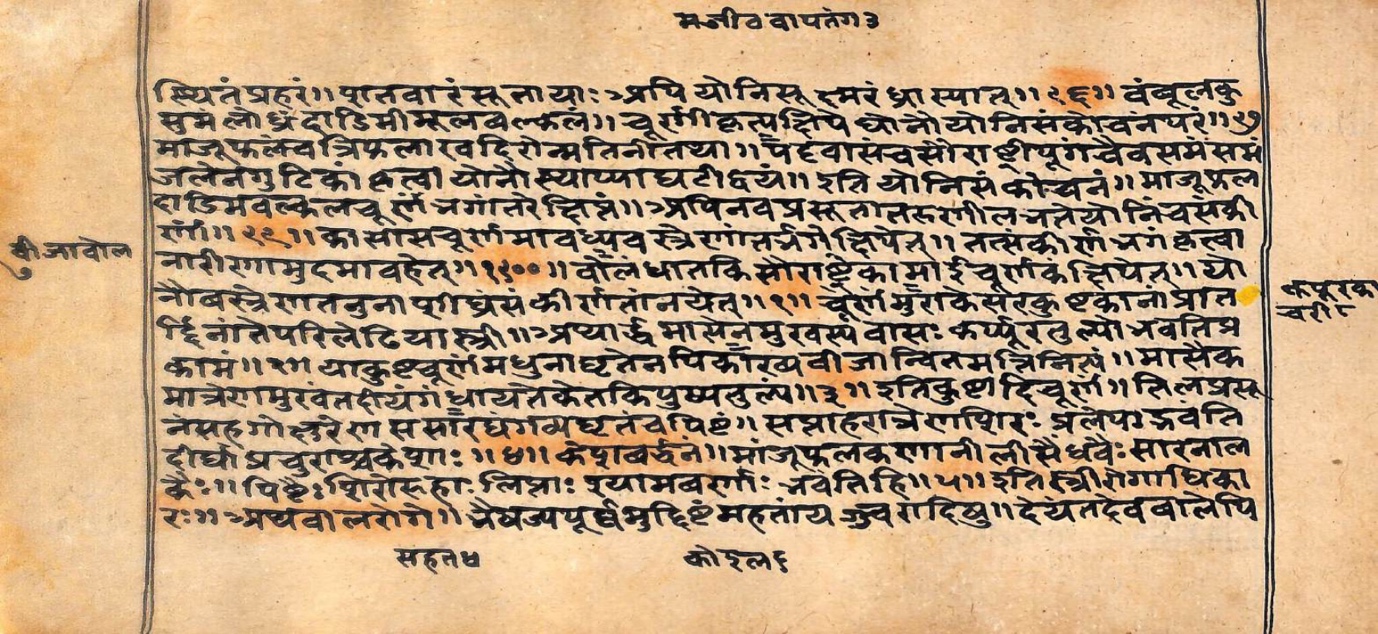 मजीठ वा पतंग३
स्थितं प्रहरं॥ शतवारं सूताया अपि योनिसूक्ष्मरंध्रा स्यात्॥९६॥ वंबूलकु
सुमं लोध्रं दाडिमीमूलवल्कलं॥ चूर्णीकृत्य क्षिपेद्योनौ योनिसंकोचनं परं॥९७
माजूफलं च त्रिफला खदिरोन्मतिनीतथा॥ सौराष्ट्रीपूगं चैव समं समं
जलेन गुटिका कृत्वा योनौ स्थाप्या घटीद्वयं॥ इति योनिसंकोचनं॥ माजूफल
दाडिमवल्कलचूर्णं भगांतरे क्षिप्तं॥ अपि नवप्रसूतातरुणी लभते योनिं च संकी
र्णां॥९९॥ कासीसचूर्णमावध्य वस्त्रेणांतर्भगे क्षिपेत्॥ तत्संकीर्णं भगं कृत्वा
नारीणामुदमावहेत्॥१००॥ वोलं धातकि सौराष्ट्रीकामांईचूर्णकं क्षिपेत्॥ यो
नौ वस्त्रेण तनुना शीघ्रं संकीर्णतां नयेत्॥१॥ चूर्णं मुराकेसरकुष्टकानां प्रात
र्द्दिनांते परिलेढि या स्त्री॥ अप्यार्द्धमासेन मुखस्य वासः कर्प्पूरतुल्यो भवति प्र
कामं॥२॥ या कुष्टचूर्णं मधुना घृतेन पिकाख्यवीजान्वितमत्ति नित्यं॥ मासैक
मात्रेण मुखं तदीयं गंधायते केतकिपुष्पतुल्यं॥३॥ इति कुष्टादिचूर्णं॥ तिलप्रसू
नं सह गोक्षुरेण ससारघं गव्यघृतं च पिष्टं॥ सप्ताहरात्रेण शिरः प्रलेपाद्भवंति
दीर्घा प्रचुराश्च केशाः॥४॥ केशवर्द्धनं॥ मांजूफलकणानीलीसैंधवैः सारनाल
कैः॥ पिष्टैः शिरोरुहा लिप्ताः श्यामवर्णाः भवंति हि॥५॥ इति स्त्रीरोगाधिका
रः॥ अथ वालरोगे॥ भैषज्यपूर्वमुद्दिष्टं महतां य ज्ज्वरादिषु॥ देयं तदेव वालेपि
वीजावोल
७
कपूरका
चरी८
सहत४
कोइल६